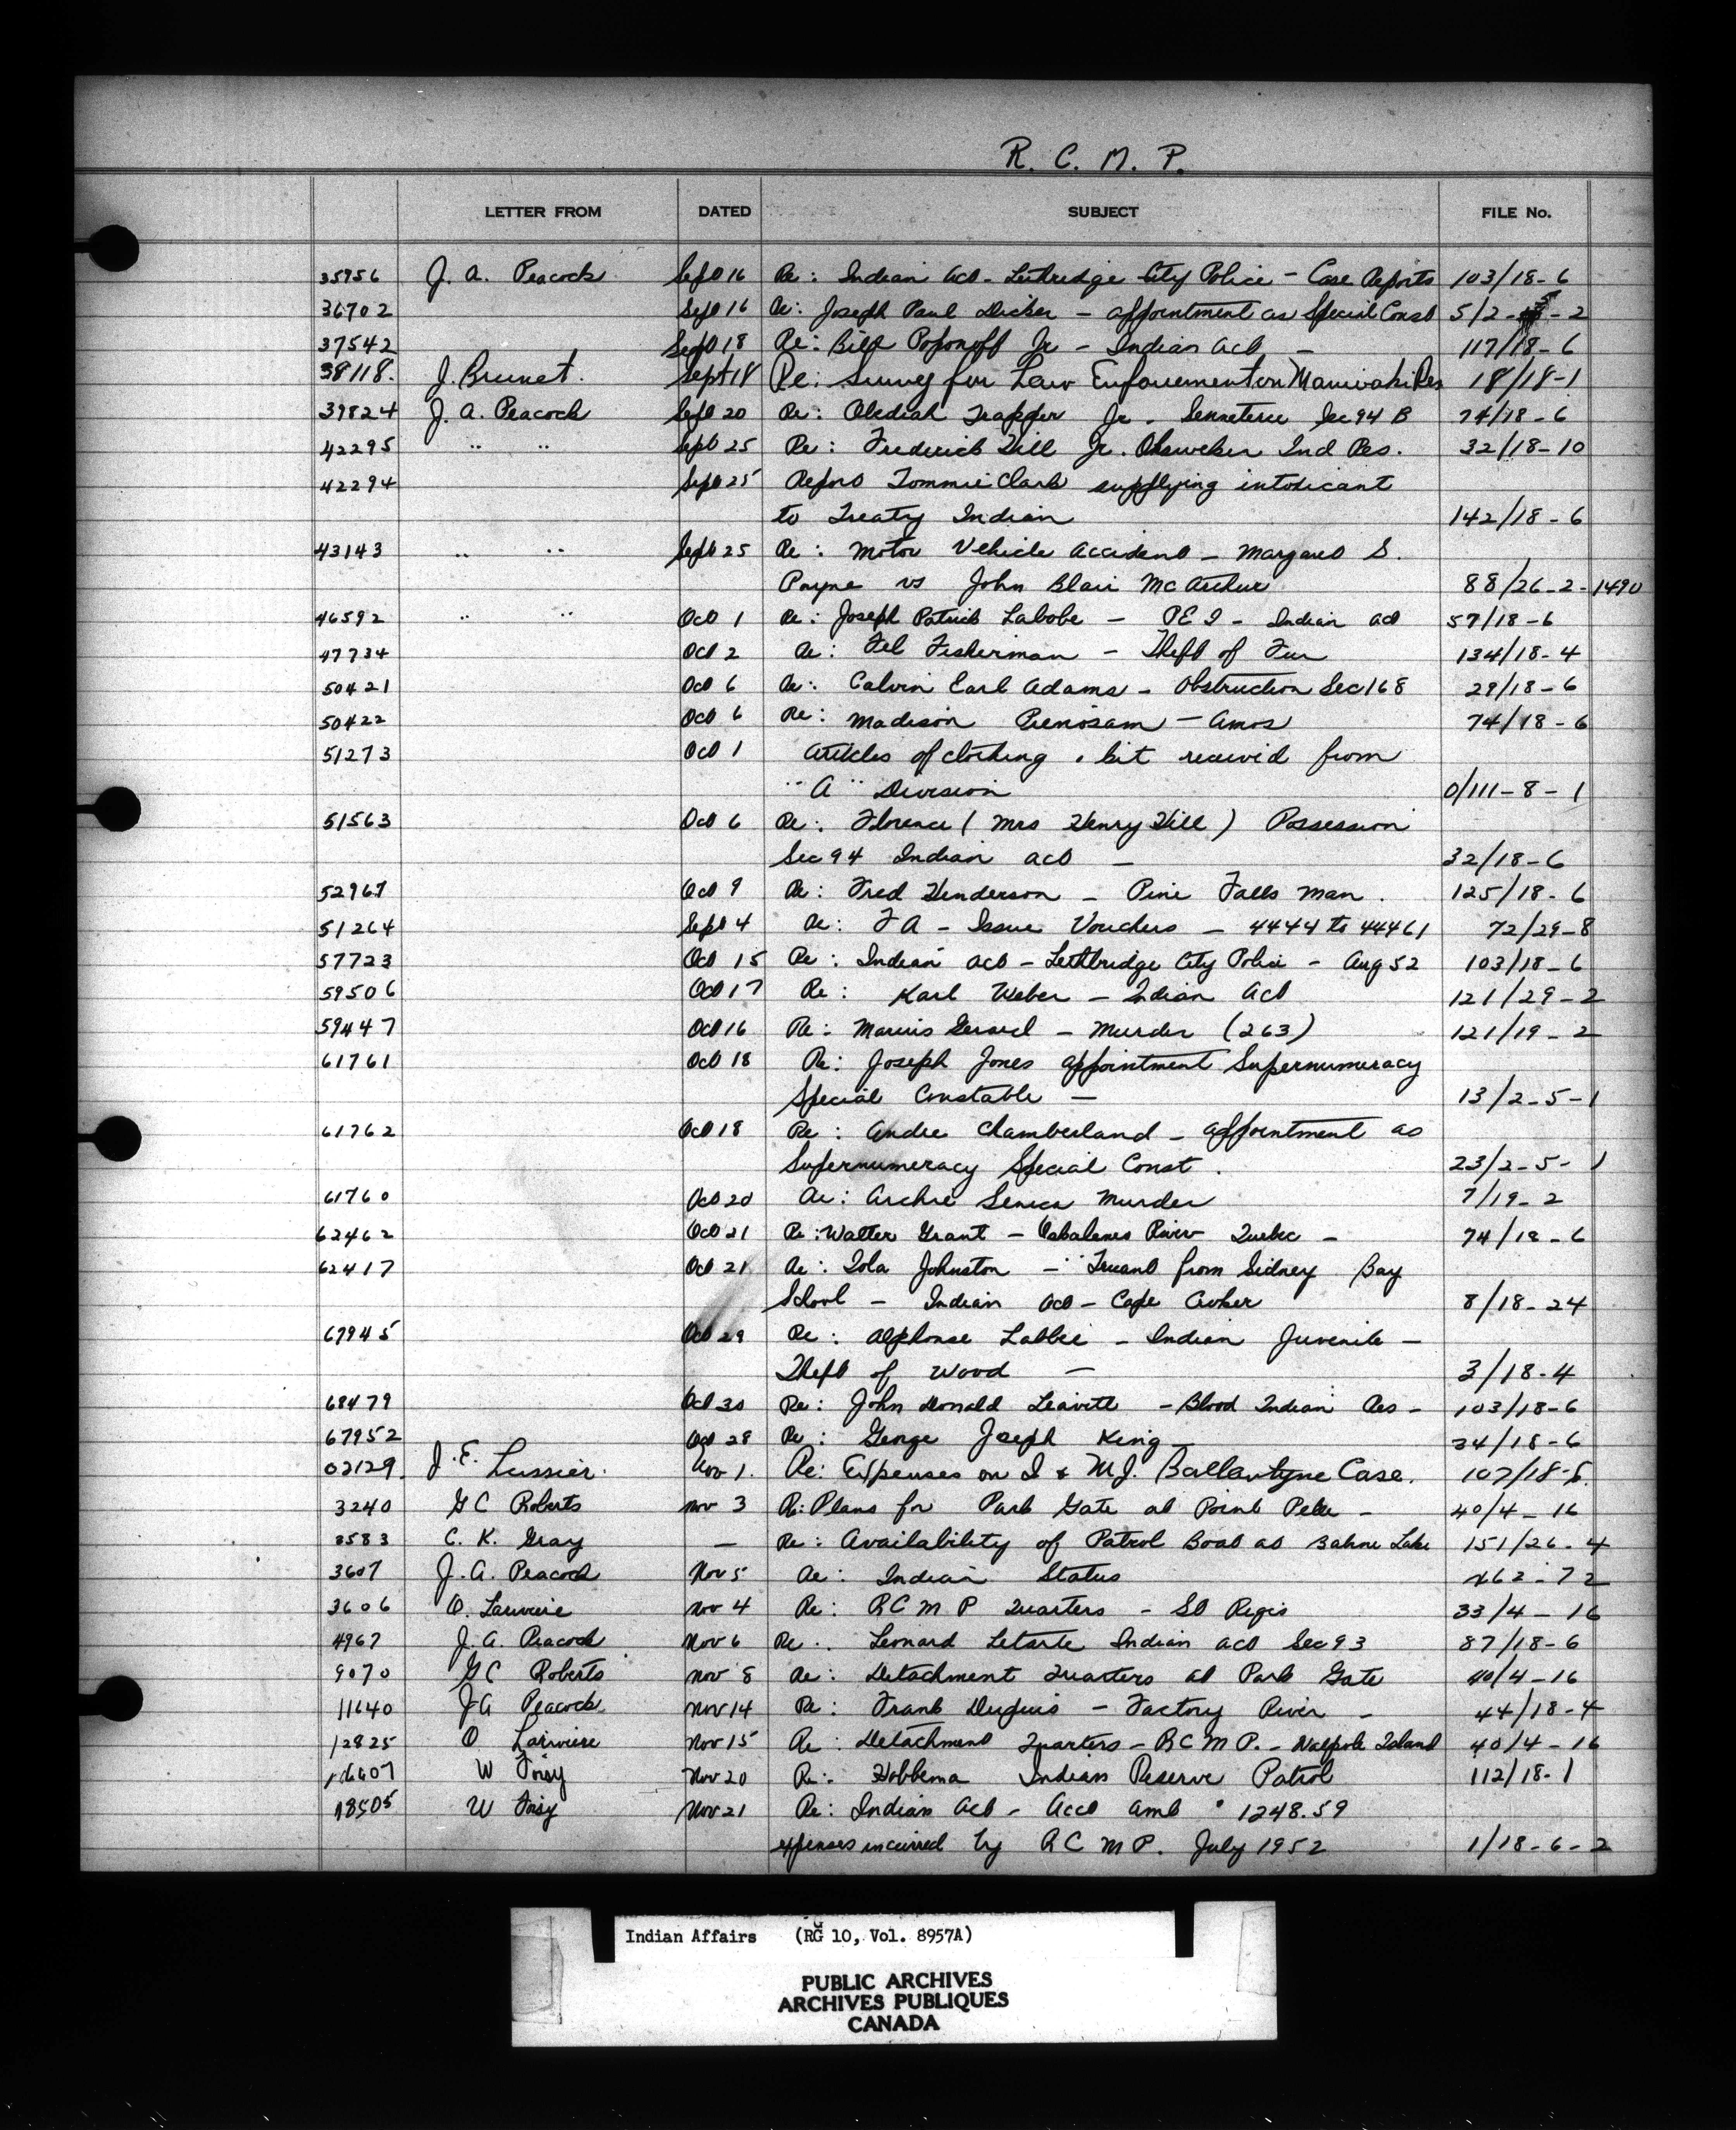 R. C. M. P.
LETTER FROM DATED SUBJECT FILE No.
35956 J. A. Peacock Sept 16 Re: Indian Act - Lethridge City Police - Case Reports 103/18-6
36702 Sept 16 Re: Joseph Paul Dicker - appointment as Special Const 5/2-5-2
37542 Sept 18 Re: Bill Poponoff Jr - Indian Act - 117/18-6
38118. J. Brunet. Sept 18 Re: Survey for Law Enforcement on Maniwaki Res 18/18-1
39824 J. A. Peacock Sept 20 Re: Obediah Trapper Jr. Senneterre Sec 94 B 74/18-6
42295 " " Sept 25 Re: Frederick Hill Jr. Ohsweken Ind Res. 32/18-10
42294 Sept 25 Report Tommie Clark supplying intoxicant
to Treaty Indian 142/18-6
43143 " " Sept 25 Re: Motor Vehicle Accident - Margaret S.
Payne vs John Blair McArthur 88/26-2-1490
46592 " " Oct 1 Re: Joseph Patrick Labobe - PEI - Indian Act 57/18-6
47734 Oct 2 Re: Fel Fisherman - Theft of Fur 134/18-4
50421 Oct 6 Re: Calvin Earl Adams - Obstruction Sec 168 29/18-6
50422 Oct 6 Re: Madison - Amos 74/18-6
51273 Oct 1 Articles of clothing & kit received from
"A" Division 0/111-8-1
51563 Oct 6 Re: Florence (Mrs Henry Hill) Possession
Sec 94 Indian Act - 32/18-6
52967 Oct 9 Re: Fred Henderson - Pine Falls Man. 125/18-6
51264 Sept 4 Re: FA - Issue Vouchers - 4444 to 44461 72/29-8
57723 Oct 15 Re: Indian Act - Lethbridge City Police - Aug 52 103/18-6
59506 Oct 17 Re: Karl Weber - Indian Act 121/29-2
59447 Oct 16 Re: Gerard - Murder (263) 121/19-2
61761 Oct 18 Re: Joseph Jones appointment Supernumeracy
Special Constable - 13/2-5-1
61762 Oct 18 Re: Andre Chamberland - appointment as
Supernumeracy Special Const. 23/2-5-1
61760 Oct 20 Re: Archie Seneca Murder 7/19-2
62462 Oct 21 Re: Walter Grant - River Quebec - 74/18-6
62417 Oct 21 Re: Iola Johnston - "Truant from Sidney Bay
School - Indian Act - Cape Croker 8/18-24
67945 Oct 29 Re: Alphonse Labbie - Indian Juvenile -
Theft of Wood - 3/18-4
68479 Oct 30 Re: John Donald Leavitt - Blood Indian Res - 103/18-6
67952 Oct 28 Re: George Joseph King 34/18-6
02129. J. E. Lussier. Nov 1. Re: Expenses on I & M.J. Ballantyne Case. 107/18-6.
3240 G C Roberts Nov 3 Re: Plans for Park Gate at Point Pelee - 40/4-16
3583 C. K. Gray - Re: Availability of Patrol Boat at Babine Lake 151/26-4
3607 J. A. Peacock Nov 5 Re: Indian Status 462-72
3606 O. Lariviere Nov 4 Re: RCMP Quarters - St Regis 33/4-16
4967 J. A. Peacock Nov 6 Re: Leonard Letarte Indian Act Sec 93 87/18-6
9070 G C Roberts Nov 8 Re: Detachment Quarters at Park Gate 40/4-16
11640 J A Peacock Nov 14 Re: Frank Dupuis - Factory River - 44/18-4
12825 O Lariviere Nov 15 Re: Detachment Quarters - R C M P. - Walpole Island 40/4-16
16607 W Foisy Nov 20 Re: Hobbema Indian Reserve Patrol 112/18-1
18505 W Foisy Nov 21 Re: Indian Act - Acct Amt 1248.59
expenses incurred by R C M P. July 1952 1/18-6-2
Indian Affairs (RG 10, Vol. 8957A)
PUBLIC ARCHIVES
ARCHIVES PUBLIQUES
CANADA